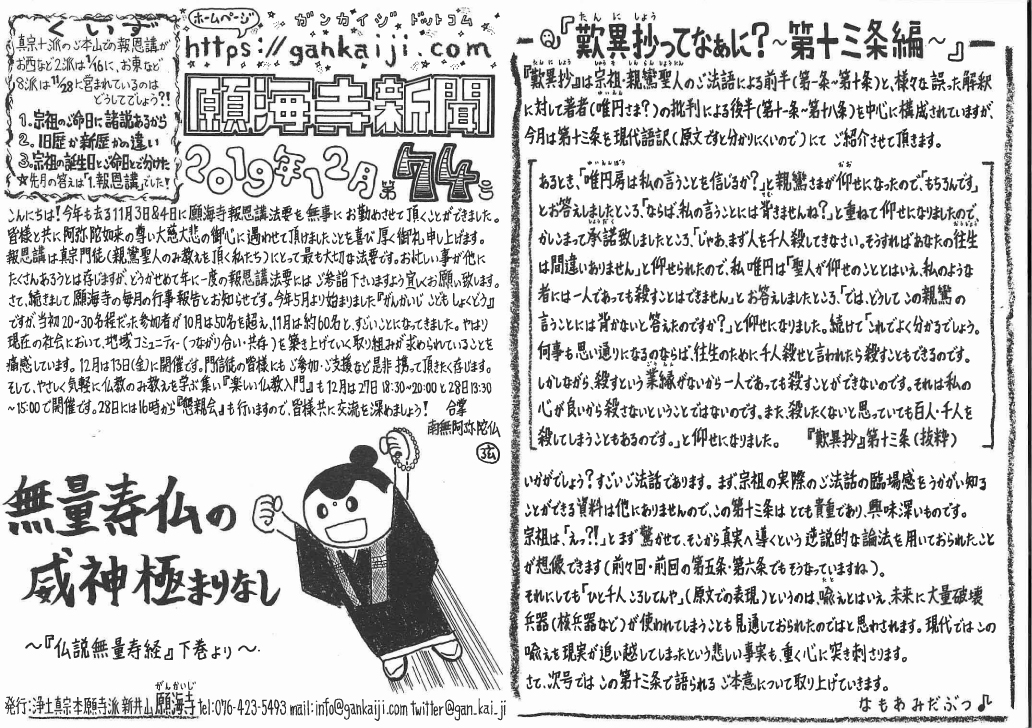 くいず
真宗十派のご本山での報恩講が
お西など2派は1/16に、お東など
8派は11/28に営まれているのは
どうしてでしょう?!
1.宗祖のご命日に諸説あるから
2.旧歴か新歴かの違い
3.宗祖の誕生日とご命日とで分けた
☆先月の答えは「1.報恩講」でした!
ホームページ
ガンカイジ ドットコム
https://gankaiji.com
願海寺新聞
2019年12月第74号
こんにちは!今年も去る11月3日&4日に願海寺報恩講法要を無事にお勤めさせて頂くことができました。
皆様と共に阿弥陀如来の尊い大慈大悲の御心に遇わせて頂けましたことを喜び厚く御礼申し上げます。
報恩講は真宗門徒(親鸞聖人のみ教えを頂く私たち)にとって最も大切な法要です。お忙しい事が他に
たくさんあろうとは存じますが、どうかせめて年に一度の報恩講法要にはご参詣下さいますよう宜しくお願い致します。
さて、続きまして願海寺の毎月の行事報告とお知らせです。今年5月より始まりました『がんかいじ こどもしょくどう』
ですが、当初20~30名程だった参加者が10月は50名を超え、11月は約60名と、すごいことになってきました。やはり
現在の社会において、地域コミュニティー(つながり合い・共存)を築き上げていく取り組みが求められていることを
痛感しています。12月は13日(金)に開催です。門信徒の皆様にもご参加・ご支援など是非携って頂きたく存じます。
そして、やさしく気軽に仏教のみ教えを学ぶ集い『楽しい仏教入門』も12月27日18:30~20:00と28日13:30
~15:00で開催です。28日には16時から『懇親会』も行いますので、皆様共に交流を深めましょう! 合掌
南無阿弥陀仏
無量寿仏の
威神極まりなし
~『仏説無量寿経』下巻より~
がんかいじ
発行:浄土真宗本願寺派 新井山 願海寺 tel:076-423-5493 mail:info@gankaiji.com twitter@gan_kai_ji
たんにしょう
『歎異抄ってなぁに?~第十三条編~』
たんにしょう しゅうそ しんらんしょうにん
『歎異抄』は宗祖・親鸞聖人のご法語による前半(第一条~第十条)と、様々な誤った解釈
に対して著者(唯円さま?)の批判による後半(第十一条~第十八条)を中心に構成されていますが、
今月は第十三条を現代語訳(原文ですと分かりにくいので)にてご紹介させて頂きます。
ゆいえんぼう おお
あるとき、「唯円房は私の言うことを信じるか?」と親鸞さまが仰せになったので、「もちろんです」
とお答えしましたところ、「ならば、私の言うことには背きませんね?」と重ねて仰せになりましたので、
しょうだく おうじょう
かしこまって承諾致しましたところ、「じゃあ、まず人を千人殺してきなさい。そうすればあなたの往生
は間違いありません」と仰せられたので、私唯円は「聖人が仰せのこととはいえ、私のような
者には一人であっても殺すことはできません」とお答えしましたところ、「では、どうしてこの親鸞の
言うことには背かないと答えたのですか?」と仰せになりました。続けて「これでよく分かるでしょう。
何事も思い通りになるのならば、往生のために千人殺せと言われたら殺すこともできるのです。
ごうえん
しかしながら、殺すという業縁がないから一人であっても殺すことができないのです。それは私の
心が良いから殺さないということではないのです。また、殺したくないと思っていても百人・千人を
殺してしまうこともあるのです。」と仰せになりました。 『歎異抄』第十三条(抜粋)
いかがでしょう?すごいご法話であります。まず、宗祖の実際のご法話の臨場感をうかがい知る
ことができる資料は他にありませんので、この第十三条はとても貴重であり、興味深いものです。
宗祖は、「えっ?!」とまず驚かせて、そこから真実へ導くという逆説的な論法を用いておられたこと
が想像できます(前々回・前回の第五条・第六条でもそうなっていますね)。
たと
それにしても「ひと千人ころしてんや」(原文での表現)というのは、喩えとはいえ、未来に大量破壊
兵器(核兵器など)が使われてしまうことも見通しておられたのではと思わされます。現代ではこの
喩えを現実が追い越してしまったという悲しい事実も、重く心に突き刺さります。
さて、次号ではこの第十三条で語られるご本意について取り上げていきます。
なもあみだぶつ